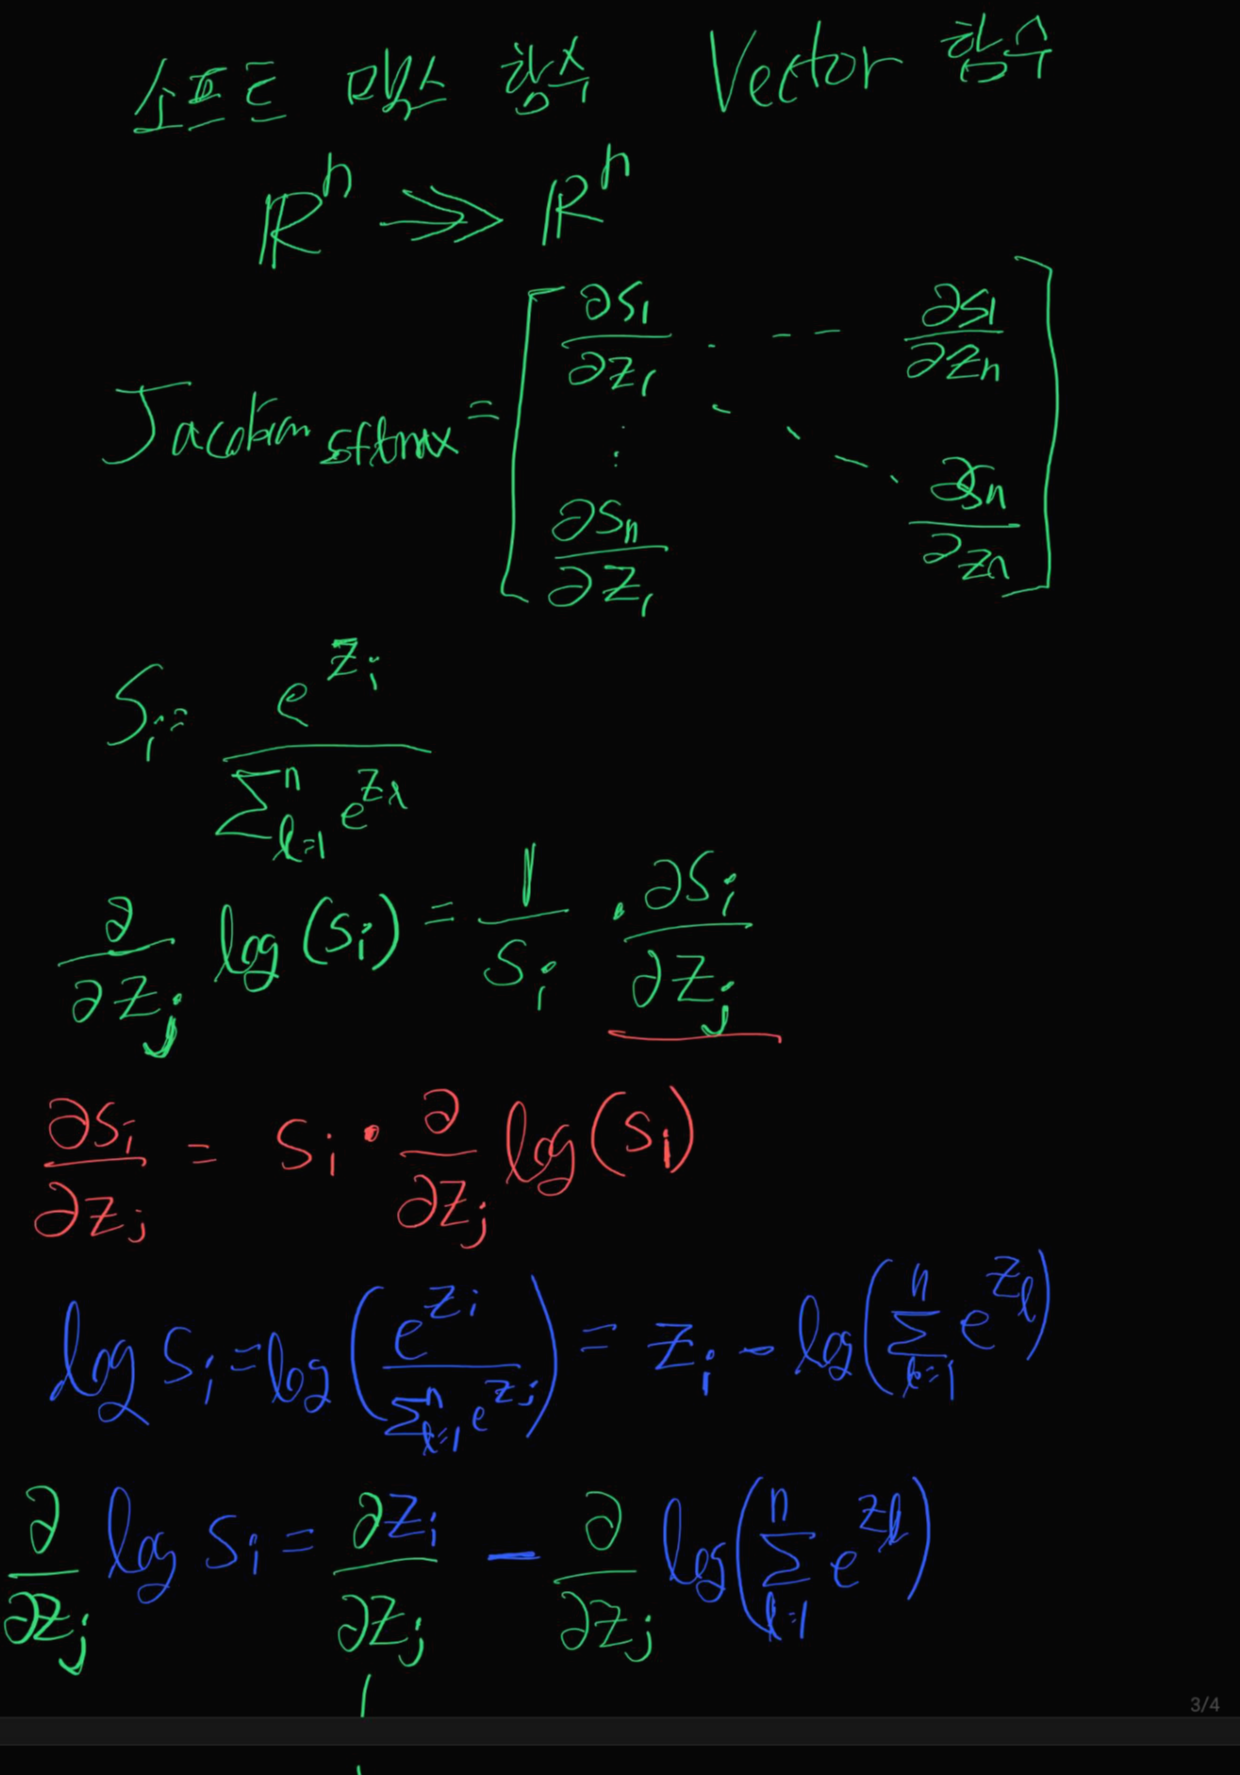 소프트 맥스 함수 Vector 함수
ℝⁿ ->> ℝⁿ
Jacobian sftmax = [ ∂S₁/∂Z₁ . -- ∂S₁/∂Zₙ ⋮ ⋱ ∂Sₙ/∂Z₁ ∂Sₙ/∂Zₙ ]
Sᵢ = e^{Zᵢ} / Σ_{l=1}^{n} e^{Z_l}
∂/∂Z_j log(Sᵢ) = 1/Sᵢ · ∂Sᵢ/∂Z_j
∂Sᵢ/∂Z_j = Sᵢ · ∂/∂Z_j log(Sᵢ)
log Sᵢ = log( e^{Zᵢ} / Σ_{l=1}^{n} e^{Z_j} ) = Zᵢ - log( Σ_{l=1}^{n} e^{Z_l} )
∂/∂Z_j log Sᵢ = ∂Zᵢ/∂Z_j - ∂/∂Z_j log( Σ_{l=1}^{n} e^{Z_l} )
3/4